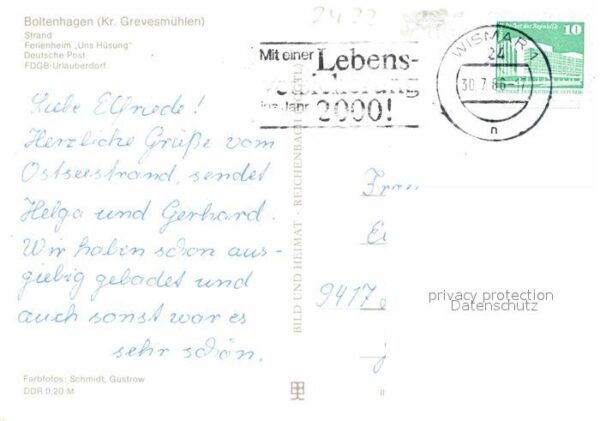 Boltenhagen (Kr. Grevesmühlen)
Strand
Ferienheim „Uns Hüsung“
Deutsche Post
FDGB-Urlauberdorf
Mit einer Lebens-
versicherung
ins Jahr 2000!
WISMAR 1
24
30.7.86-17
n
Palast der Republik 10
Liebe Elfriede!
Herzliche Grüße vom
Ostseestrand, sendet
Helga und Gerhard.
Wir haben schon aus-
giebig gebadet und
auch sonst war es
sehr schön.
BILD UND HEIMAT · REICHENBACH (VOGTL)
9417
privacy protection
Datenschutz
Farbfotos: Schmidt, Güstrow
DDR 0,20 M